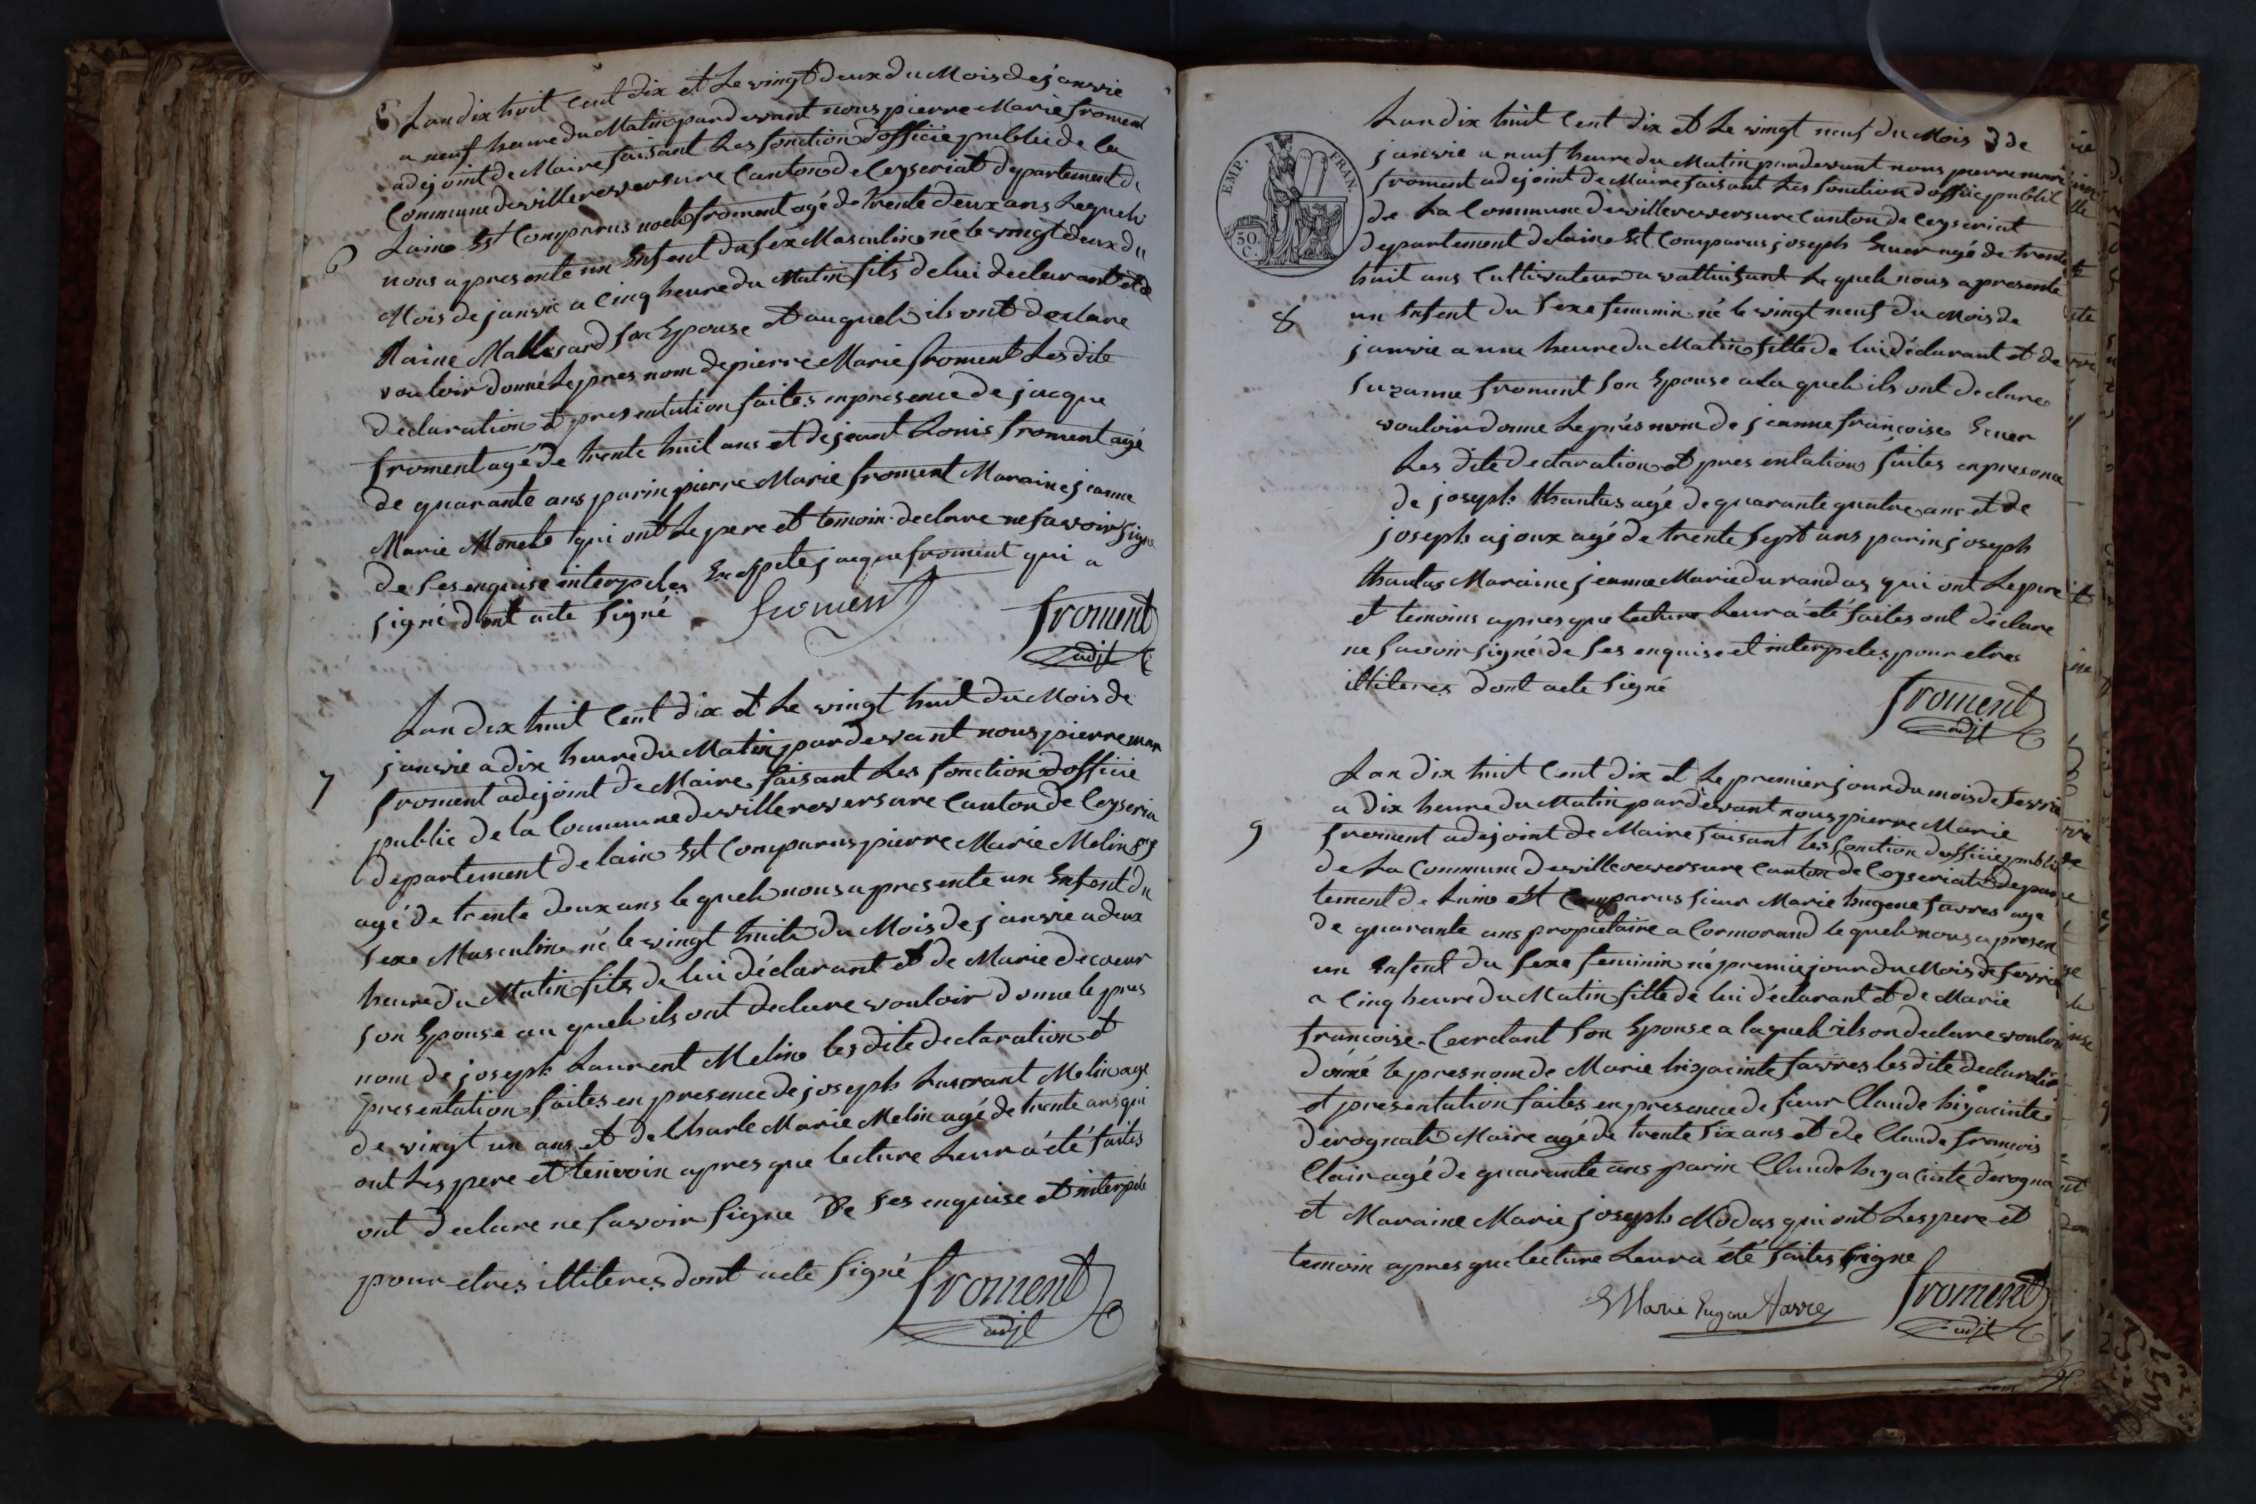 6
Lan dix huit cent dix et Le vingt deux du Mois de janvie
a neuf heure du Matin pardevant nous pierre Marie froment
adejoint de Maire faisant Les fonction d'officie public de la
Commune de villereversure Canton de Ceyseriat departement de
Laine Est Comparus noel froment agé de trente deux ans Lequel
6
nous a presente un Enfent du sex Masculin né le vingt deux du
Mois de janvie a Cinq heure du Matin fils de lui declarant et de
Maillard son Epouse et auquel ils ont declare
vouloir donné Le pres nom de pierre Marie froment Les dite
declaration et presentation faites en presence de jacque
froment agé de trente huit ans et de jeant Louis froment agé
de quarante ans parin pierre Marie froment Maraine jeanne
Marie Monet qui ont Le pere et temoin declare ne savoir signe
de ses enquise interpeles Exespete jacque froment qui a
signé dont acte signé
froment
froment
adjt
7
Lan dix huit cent dix et Le vingt huit du Mois de
janvie a dix heure du Matin pardevant nous pierre mar
froment adejoint de Maire faisant Les fonction d'officie
public de la Commune de villereversure Canton de Ceyseria
departement de laine Est Comparus pierre Marie Melin
agé de trente deux ans lequel nous a presente un Enfent du
sexe Masculin né le vingt huit du Mois de janvie a deux
heure du Matin fils de lui déclarant et de Marie decoeur
son Epouse au quel ils ont declare vouloir donne le pres
nom de joseph Laurent Melin les dite declaration et
presentation faites en presence de joseph Laurant Melin age
de vingt un ans et de Charle Marie Melin agé de trente ans qui
ont Les pere et temoin apres que lecture Leur a été faites
ont declare ne savoir signe De ses enquise et interpele
pour etres illiteres dont acte signé
froment
adjt
EMP. FRAN.
50.
C.
Lan dix huit Cent dix et Le vingt neuf du Mois de
janvie a neuf heure du Matin pardevant nous pierre marie
froment adejoint de Maire faisant Les fonction d'officie publit
de La Commune de villereversure Canton de Ceyseriat
departement de laine Est Comparus joseph Ecuer agé de trente
huit ans Cultivateur a Lequel nous a presente
8
un Enfent du sexe feminin né le vingt neuf du Mois de
janvie a une heure du Matin fille de lui déclarant et de
suzanne froment son Epouse a la quel ils ont declare
vouloir donne Le prés nom de jeanne françoise Ecuer
Les dite declaration et presentation faites en presence
de joseph thantas agé de quarante quatre ans et de
joseph ajoux agé de trente sept ans parin joseph
thantas Maraine jeanne Marie durandas qui ont Le pere
et temoins apres que lecture Leur a été faites ont déclare
ne savoir signé de ses enquise et interpeles pour etres
illiteres dont acte signé
froment
adjt
Lan dix huit Cent dix et Le premier jour du mois de fevrie
a dix heure du Matin pardevant nous pierre Marie
9
froment adejoint de Maire faisant les fonction d'officie public
de La Commune de villereversure Canton de Ceyseriat depar
tement de Laine est Comparus sieur Marie hugene favres age
de quarante ans propietaire a Cormorand le quel nous a presen
un Enfent du sexe feminin né premie jour du Mois de fevrie
a Cinq heure du Matin fille de lui déclarant et de Marie
francoise son Epouse a laquel ils on declare vouloir
donné le pres nom de Marie hiyacinte favres les dite declaratio
et presentation faites en presence de sieur Claude hiyacinte
derognat Maire agé de trente six ans et de Claude francois
Clair agé de quarante ans parin Claude hiyacinte dérogna
et Maraine Marie joseph Modas qui ont Les pere et
temoin apres que lecture Leur a été faites signe
Marie Eugene Favre
froment
adjt